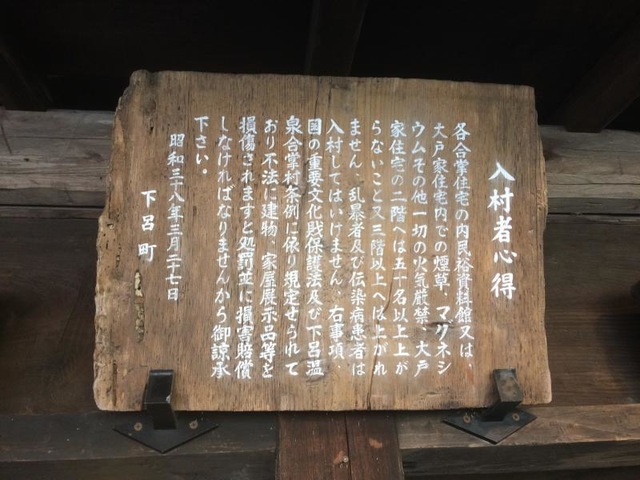 入村者心得
各合掌住宅の内民裕資料館又は、
大戸家住宅内での煙草・マグネシ
ウムその他一切の火気厳禁、大戸
家住宅の二階へは五十名以上上が
らないこと又三階以上へは上がれ
ません、乱暴者及び伝染病患者は
入村してはいけません、右事項、
國の重要文化財保護法及び下呂温
泉合掌村条例に依り規定せられて
おり不法に建物、家屋展示品等を
損傷されますと処罰並に損害賠償
しなければなりませんから御諒承
下さい。
昭和三八年三月二七日
下呂町